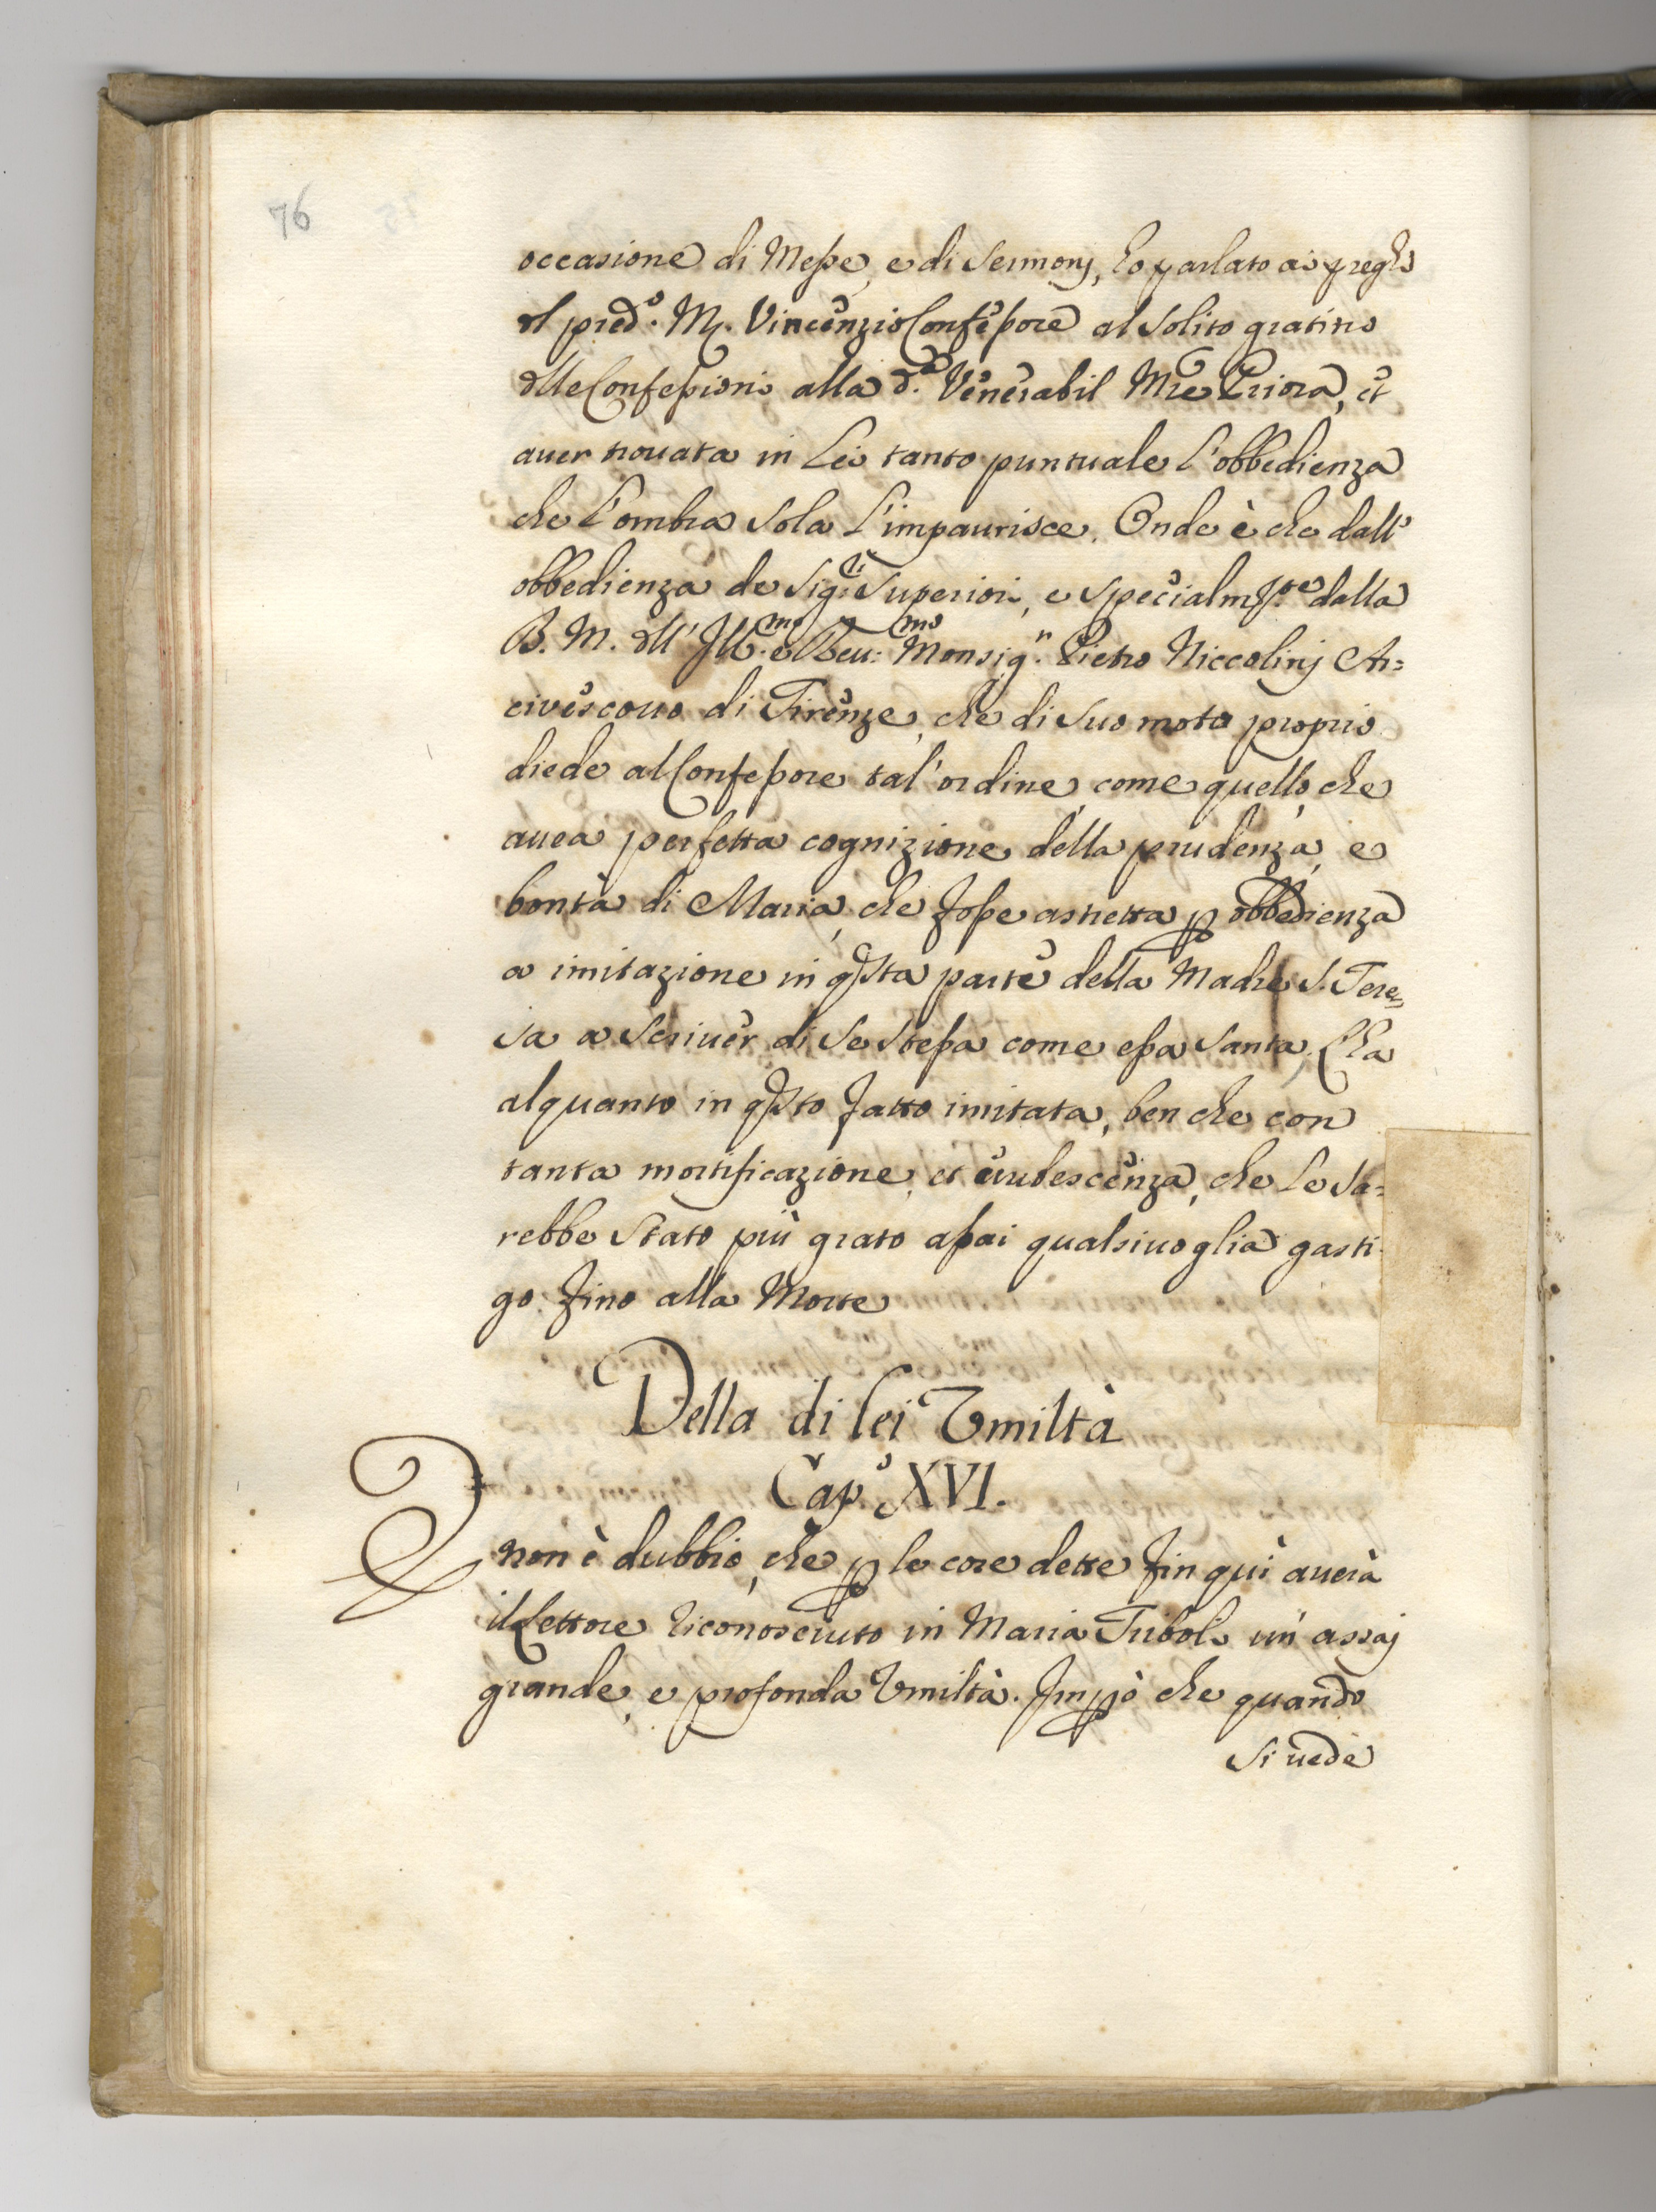 76
occasione di Messe, e di Sermonj, ho parlato ai preghi
del pred.º M. Vincenzio Confessore al solito gratino
delle Confessioni alla d.ª Venerabil Mre Priora, et
aver trouata in Lei tanto puntuale l'obbedienza
che l'ombra sola l'impaurisce. Onde è che dall'
obbedienza de Sig.ri Superiori, e specialm.te dalla
B. M. dell' Ill.mo e Reu.mo Monsig.n Pietro Niccolinj Ar=
civescouo di Firenze, che di suo moto proprio
diede al Confessore tal'ordine, come quello, che
auea perfetta cognizione della prudenza, e
bontà di Maria, che fosse astretta p obbedienza
a imitazione in qsta parte della Madre S. Tere=
sa a scriuer di se stessa come essa Santa, l'ha
alquanto in qsto fatto imitata, ben che con
tanta mortificazione, et erubescenza, che le sa=
rebbe stato più grato assai qualsiuoglia gasti
go fino alla Morte
Della di lei Vmiltà
Cap.º XVI.
non è dubbio, che p le cose dette fin quì auerà
il Lettore riconosciuto in Maria Triboli un' assaj
grande, e profonda Vmiltà. Imppò che quando
si uede